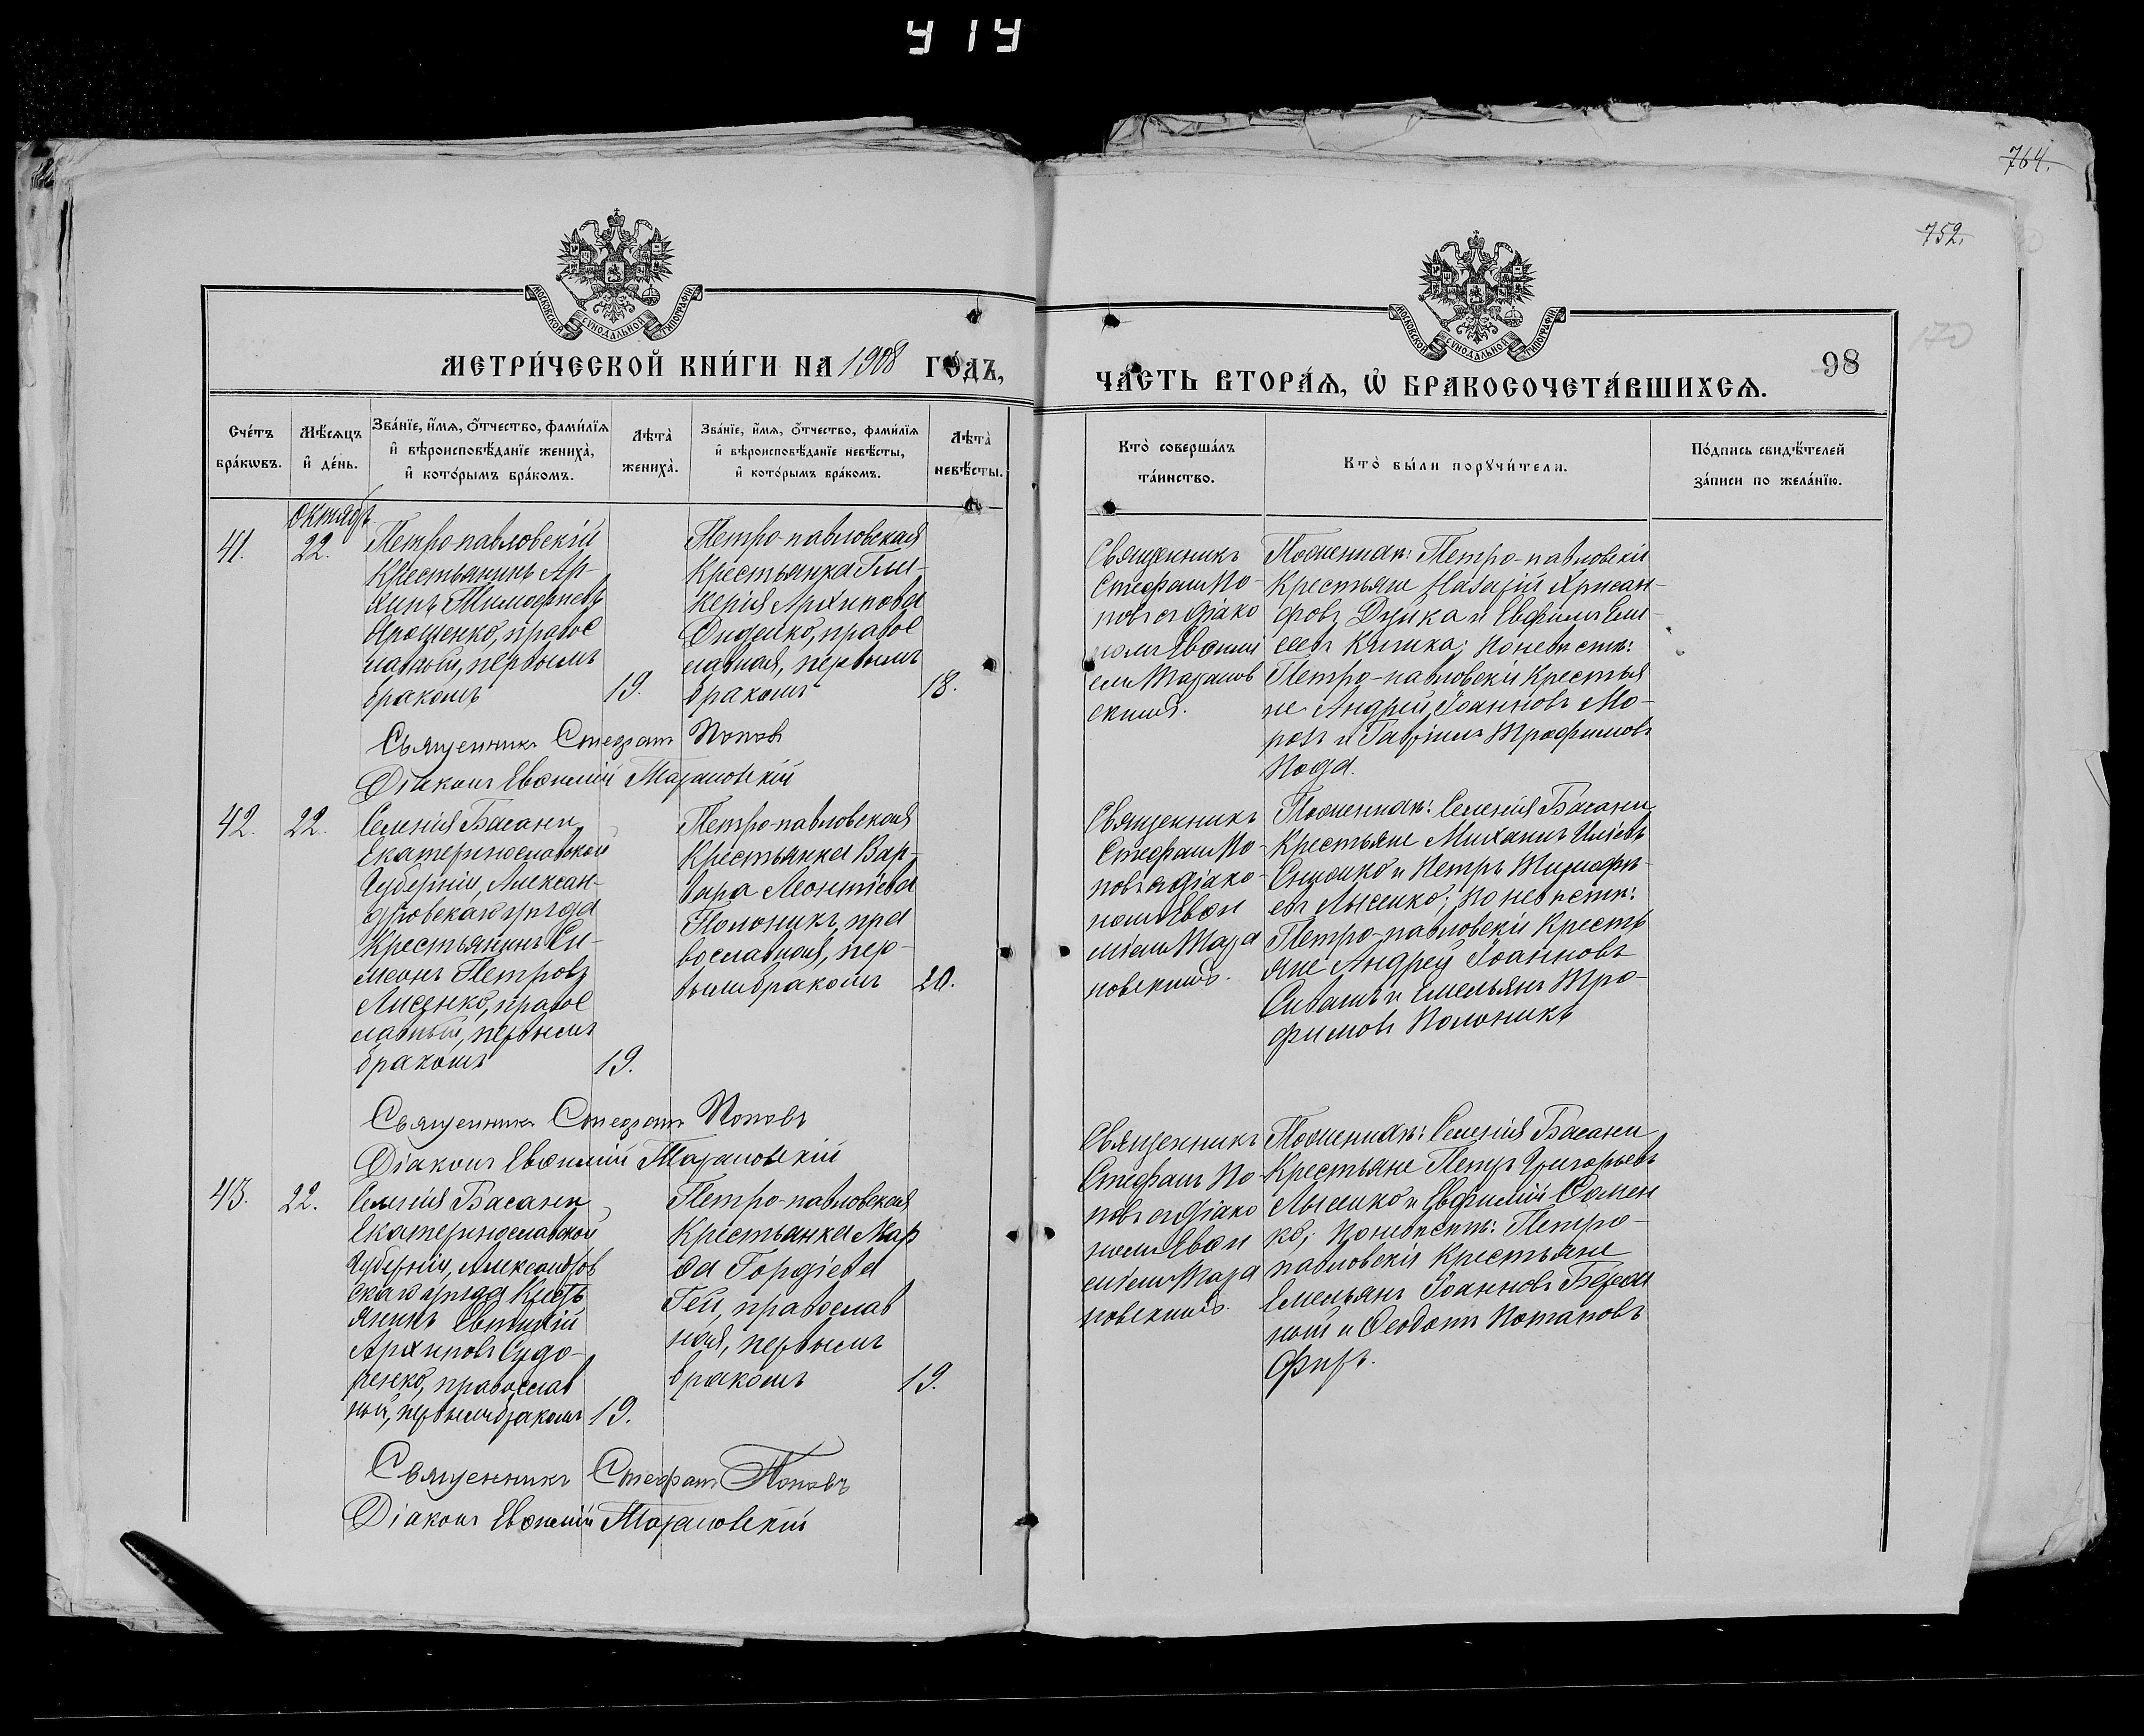 414
764.
752.
170
МОСКОВСКОЙ СѴНОДАЛЬНОЙ ТИПОГРАФІИ
МОСКОВСКОЙ СѴНОДАЛЬНОЙ ТИПОГРАФІИ
МЕТРИ́ЧЕСКОЙ КНИ́ГИ НА 1908 ГО́ДЪ,
ЧА́СТЬ ВТОРА́Ѧ, Ѡ҆ БРАКОСОЧЕТА́ВШИХСѦ.
98
Сче́тъ бра́кѡвъ.
Мѣ́сѧцъ и҆ де́нь.
Зва́нїе, и҆́мѧ, ѻ҆́тчество, фами́лїѧ
и҆ вѣроисповѣ́данїе жениха̀,
и҆ кото́рымъ бра́комъ.
Лѣта̀ жениха̀.
Зва́нїе, и҆́мѧ, ѻ҆́тчество, фами́лїѧ
и҆ вѣроисповѣ́данїе невѣ́сты,
и҆ кото́рымъ бра́комъ.
Лѣта̀ невѣ́сты.
Кто̀ соверша́лъ
та́инство.
Кто̀ бы́ли порꙋчи́тели.
По́дпись свидѣ́телей
за́писи по жела́нїю.
41.
октябрь
22.
Петро-павловскій
Крестьянинъ Ар-
хипъ Тимофѣевъ
Ярошенко, правос
лавный, первымъ
бракомъ
19.
Петро-павловская
Крестьянка Гли-
керія Архипова
Диденко, правос
лавная, первымъ
бракомъ
18.
Священникъ
Стефанъ По-
повъ съ діако
номъ Евѳимі
емъ Тарановскимъ
Поженихѣ: Петро-павловскіе
Крестьяне Назарій Хрисан-
фовъ Дуйка и Евфимъ Ели-
сеевъ Кишка; Поневѣстѣ:
Петро-павловскіе Крестья
не Андрей Іоанновъ Мо-
розъ и Гавріилъ Трофимовъ
Священникъ Стефанъ Поповъ
Діаконъ Евѳимій Тарановскій
42.
22.
Селенія Басани
Екатеринославской
Губерніи, Алексан-
дровскаго уѣзда
Крестьянинъ Си-
меонъ Петровъ
Лисенко, правос
лавный, первымъ
бракомъ
19.
Петро-павловская
Крестьянка Вар-
вара Леонтіева
Полоникъ, пра
вославная, пер-
вымъ бракомъ
20.
Священникъ
Стефанъ По-
повъ съ діако-
номъ Евѳи
міемъ Тара
новскимъ.
Поженихѣ: Селенія Басани
Крестьяне Михаилъ Иліевъ
и Петръ Тимофѣ-
евъ Лысенко; Поневѣстѣ:
Петро-павловскіе Кресть
яне Андрей Іоанновъ
Сивашъ и Емельянъ Тро-
фимовъ Полоникъ
Священникъ Стефанъ Поповъ
Діаконъ Евѳимій Тарановскій
43.
22.
Селенія Басани
Екатеринославской
Губерніи, Александров
скаго уѣзда Кресть
янинъ Евтихій
Архиповъ Сидо-
ренко, православ
ный, первымъ бракомъ
19.
Петро-павловская
Крестьянка Мар
ѳа Гордіева
Гей, православ
ная, первымъ
бракомъ
19.
Священникъ
Стефанъ По-
повъ съ діако
номъ Евѳи
міемъ Тара
новскимъ.
Поженихѣ: Селенія Басани
Крестьяне Петръ Григорьевъ
Лысенко и Евфимій Семен
ко; Поневѣстѣ: Петро-
павловскіе Крестьяне
Емельянъ Іоанновъ
и Ѳеодотъ Потаповъ
Священникъ Стефанъ Поповъ
Діаконъ Евѳимій Тарановскій